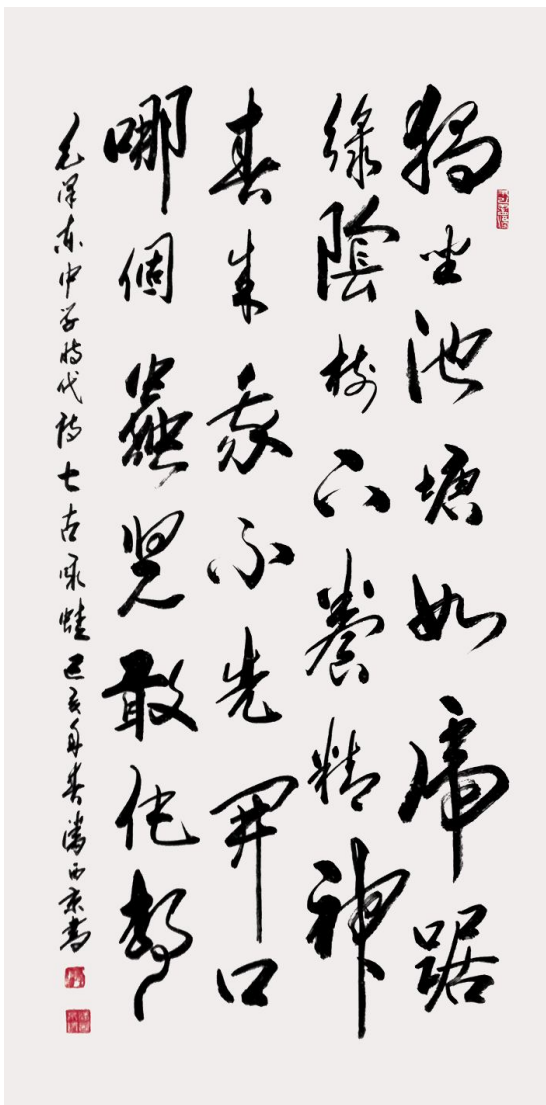 獨坐池塘如虎踞
綠陰樹下養精神
春來我不先開口
哪個蟲兒敢作聲
毛澤東中学時代詩七古詠蛙己亥年春潘西京書